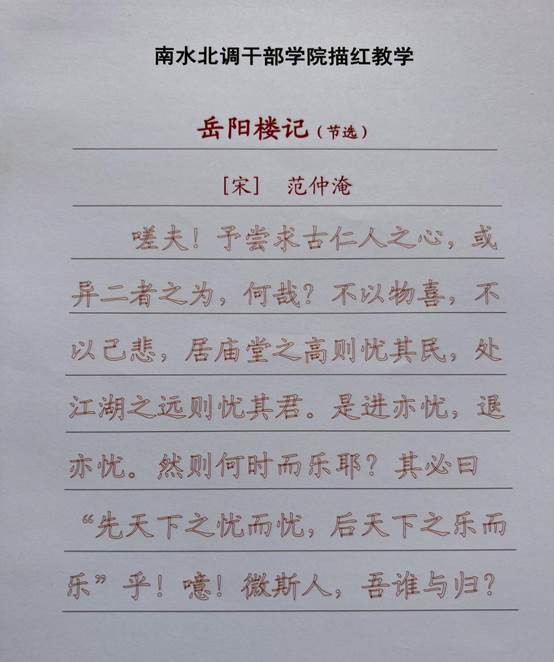 南水北调干部学院描红教学
岳阳楼记（节选）
［宋］ 范仲淹
嗟夫！予尝求古仁人之心，或
异二者之为，何哉？不以物喜，不
以己悲，居庙堂之高则忧其民，处
江湖之远则忧其君。是进亦忧，退
亦忧。然则何时而乐耶？其必曰
“先天下之忧而忧，后天下之乐而
乐”乎！噫！微斯人，吾谁与归？